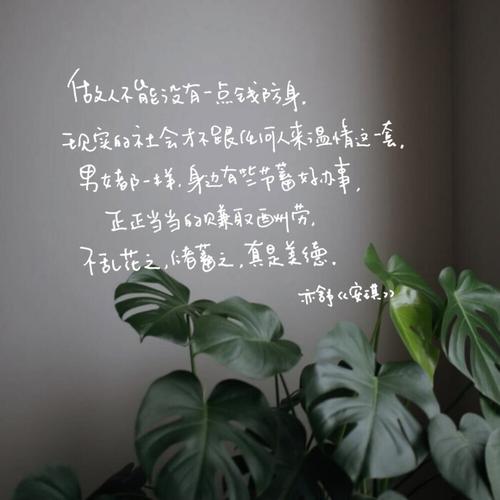 做人不能没有一点钱防身.
现实的社会才不跟任何人来温情这一套.
男女都一样,身边有些节蓄好办事,
正正当当的赚取酬劳,
不乱花之,储蓄之,真是美德.
亦舒《安琪》